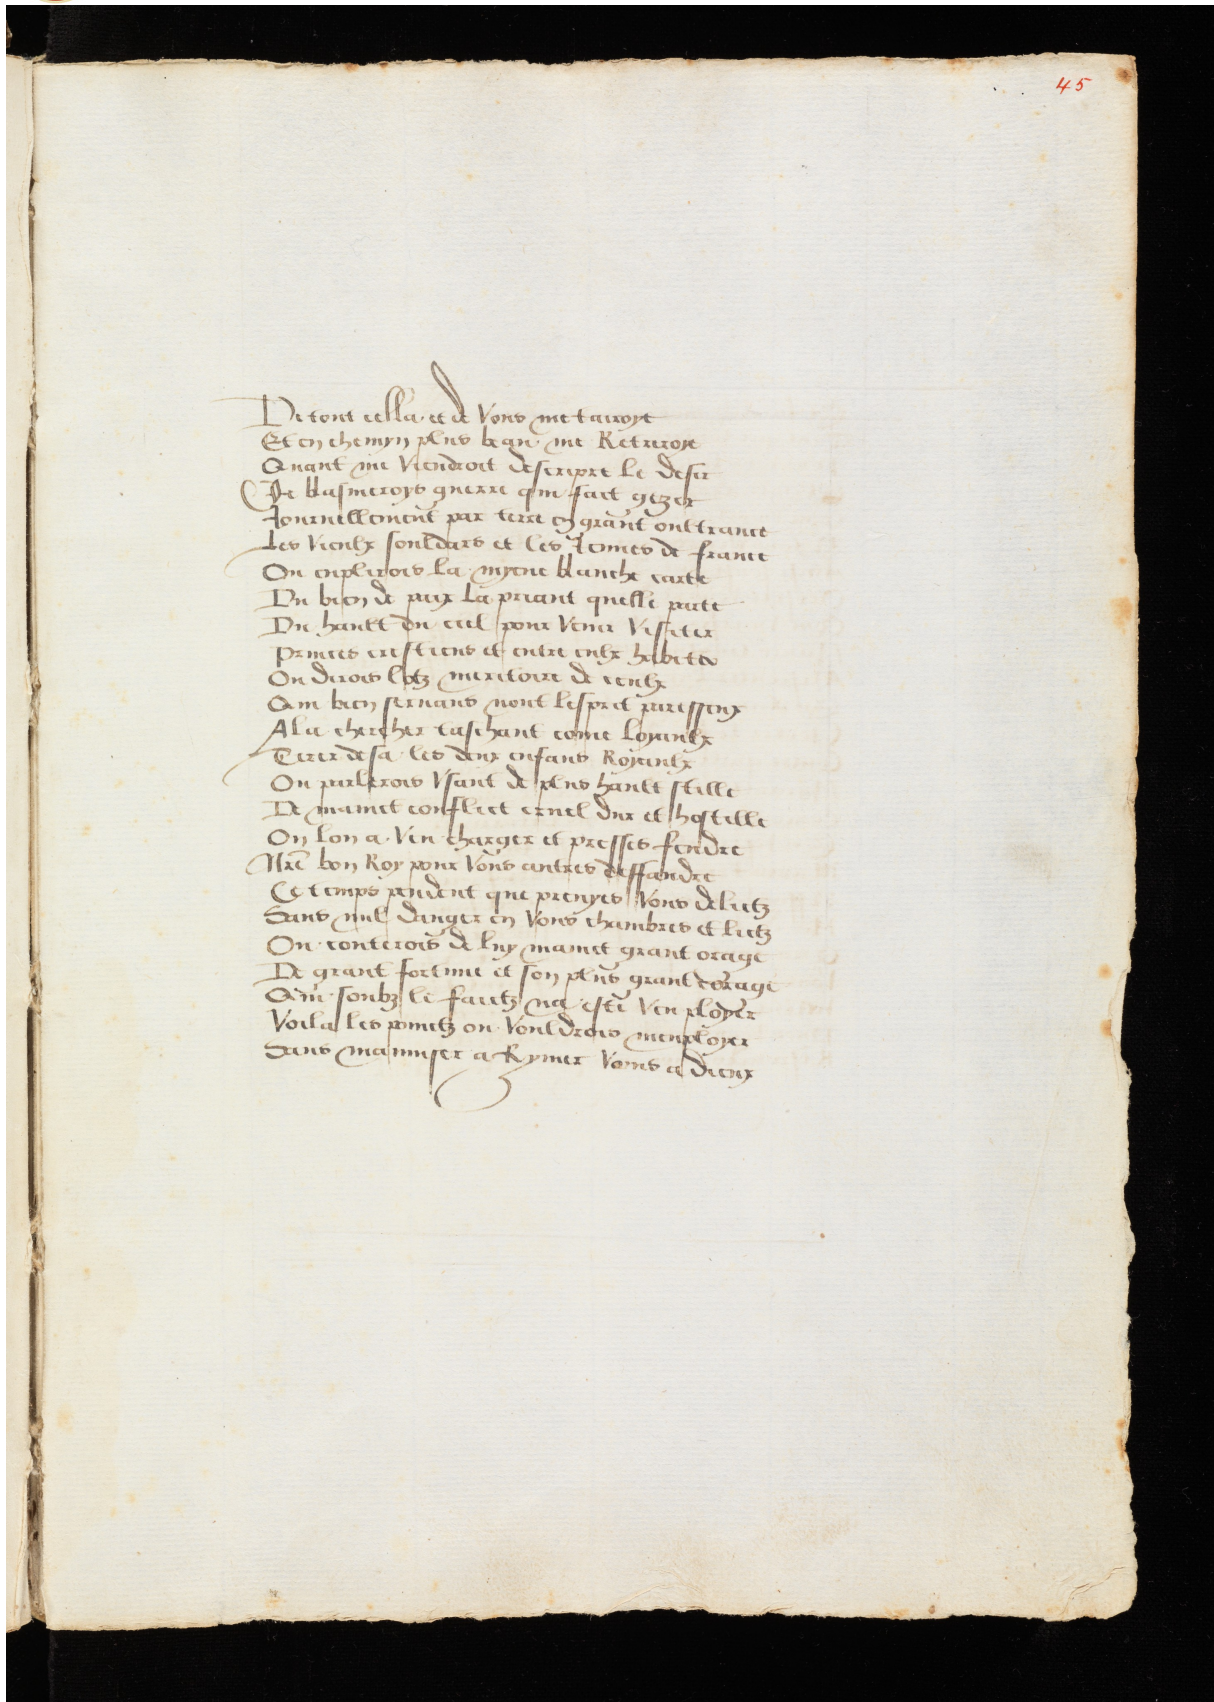 45
De tout cella et de Vous me tairoye
Et en chemyn plus beau me Retiroye
Quant me Viendroit descripre le desir
Je blasmeroys guerre qui fait gezer
Journellement par terre en grant oultrance
Les Vieulx souldars et les Jeunes de france
Ou enplirois la myene blanche carte
Du bien de paix la priant quelle parte
Du hault du ciel pour Venir Visiter
Princes crestiens et entre eulx habiter
Ou dirois lotz meritoire de ceulx
Qui bien servans nont lesprit paresseux
A la chercher taschant come loyaulx
Tirer desa les deux enfans Royaulx
Ou parlerois Vsant de plus hault stille
De mainct conflict cruel dur et hostille
Ou lon a Veu charger et presses fendre
Nre bon Roy pour Vous autres deffandre
Ce temps pendent que prenyes Vous delictz
Sans nul danger en Vous chambres et lictz
Ou conterois de luy mainct grant orage
De grant fortune et son plus grant corage
Qui soubz le faictz na este Veu ployer
Voila les poinctz ou Vouldrois menployer
Sans mamuser a Rymer Voms a dieux